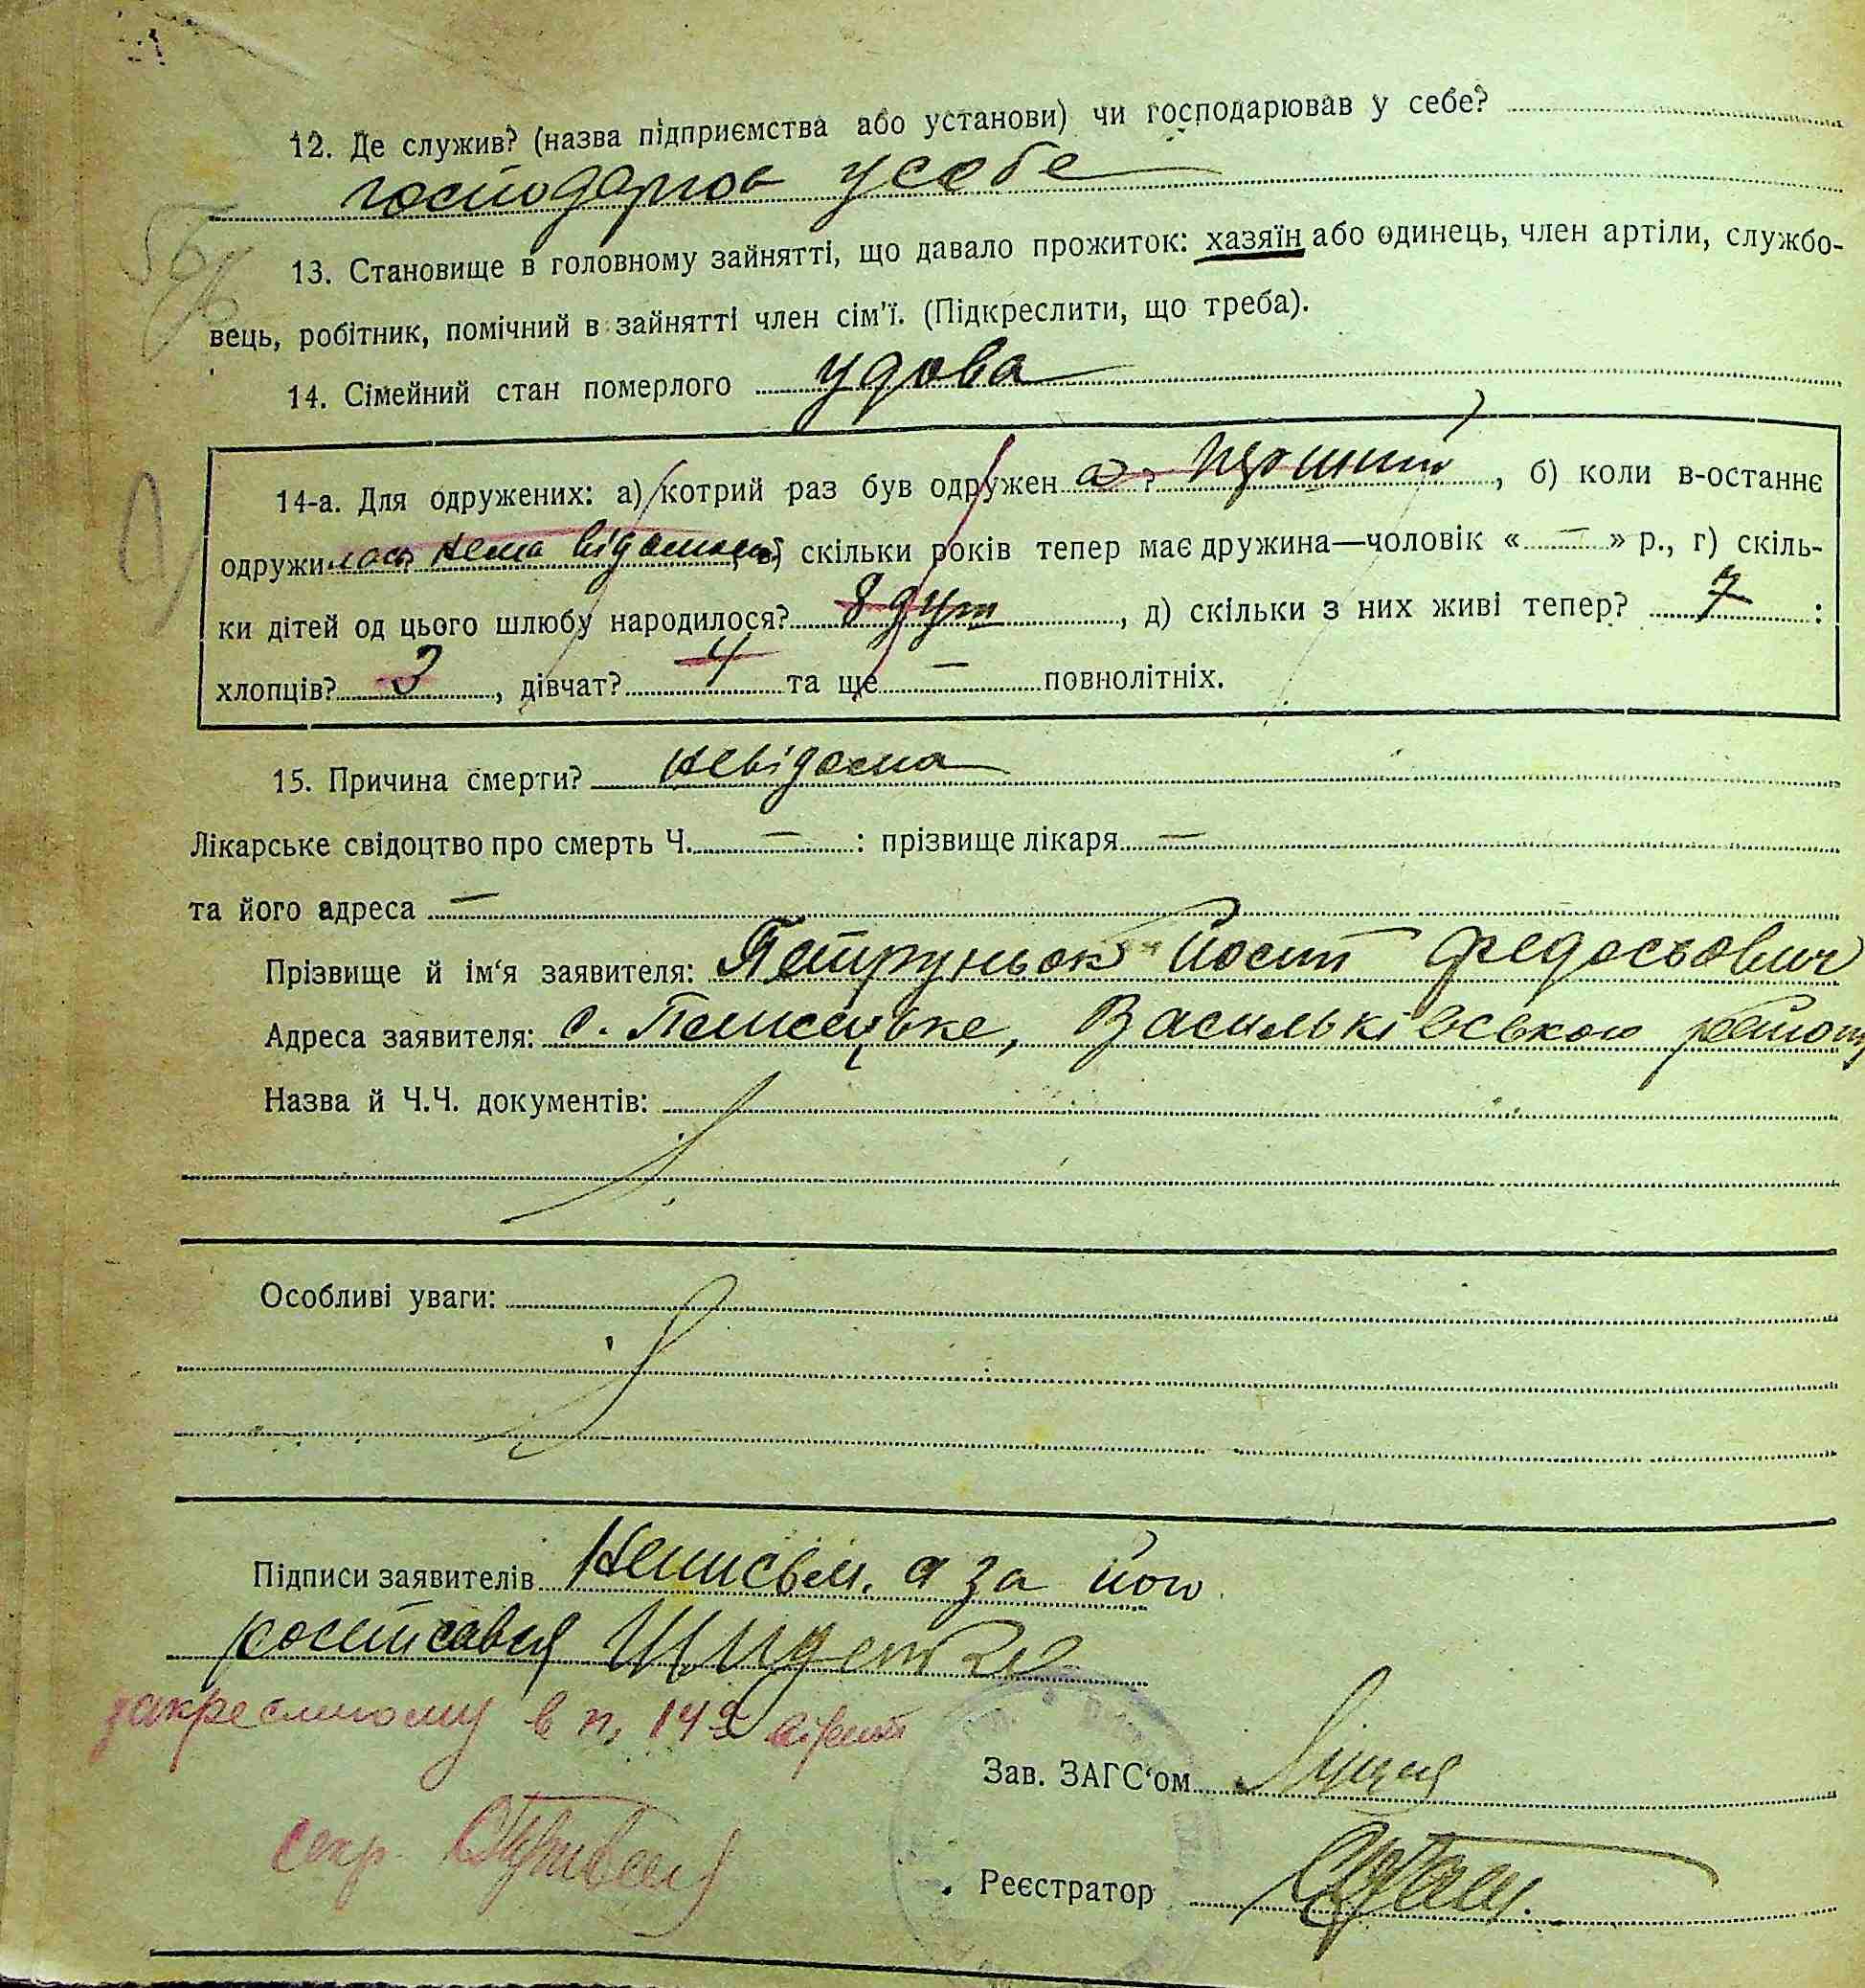 12. Де служив? (назва підприємства або установи) чи господарював у себе?
господарюв у себе
13. Становище в головному зайнятті, що давало прожиток: хазяїн або одинець, член артіли, службо-
вець, робітник, помічний в зайнятті член сім'ї. (Підкреслити, що треба).
14. Сімейний стан померлого удова
14-а. Для одружених: а) котрий раз був одружен а ?, б) коли в-останнє
одружилось нема відомост, в) скільки років тепер має дружина—чоловік «—» р., г) скіль-
ки дітей од цього шлюбу народилося? 8 душ, д) скільки з них живі тепер? 7 :
хлопців? 3, дівчат? 4 та ще — повнолітніх.
15. Причина смерти? невідома
Лікарське свідоцтво про смерть Ч. — : прізвище лікаря —
та його адреса —
Прізвище й ім'я заявителя: Петруньок Йосип Федосьович
Адреса заявителя: с. Васильківського району
Назва й Ч.Ч. документів:
Особливі уваги:
Підписи заявителів Неписьм. а за його
росписався
закресленому в п. 14а вірить
секр.
Зав. ЗАГС'ом
Реєстратор